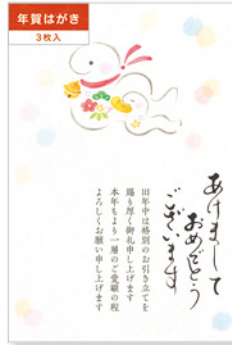 年賀はがき
3枚入
あけまして
おめでとう
ございます
旧年中は格別のお引き立てを
賜り厚く御礼申し上げます
本年もより一層のご愛顧の程
よろしくお願い申し上げます